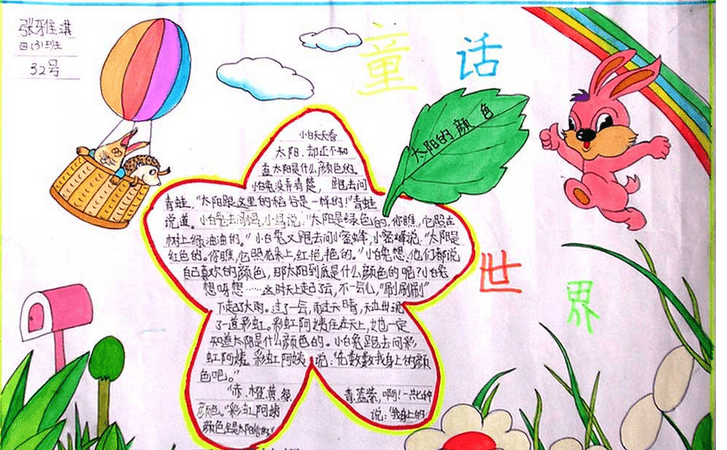 张雅淇
四(3)班
32号
童话
世界
太阳的颜色
小白兔天天看
太阳,却还不知
道太阳是什么颜色的。
小白兔没弄清楚,跑去问
青蛙,“太阳跟这里的稻谷是一样的!”青蛙
说道。小白兔去问小鸟,小鸟说:“太阳是绿色的,你瞧,它照在
树上绿油油的。”小白兔又跑去问小蜜蜂,小蜜蜂说:“太阳是
红色的。你瞧,它照在花上,红艳艳的。”小白兔想,他们都说
自己喜欢的颜色,那太阳到底是什么颜色的呢?小白兔
想啊想……这时天上起了云,不一会儿,“刷刷刷”
下起了大雨。过了一会,雨过天晴,天边出现
了一道彩虹。彩虹阿姨住在天上,她一定
知道太阳是什么颜色的。小白兔跑去问彩
虹阿姨。彩虹阿姨说:“先数数我身上的颜
色吧。”
“赤、橙、黄、绿
青、蓝、紫,啊!一共七种
颜色。”彩虹阿姨
说:“我身上的
颜色全是太阳给的。”